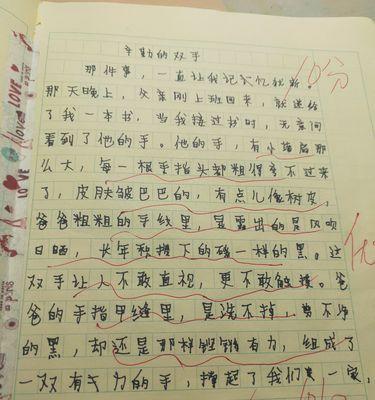 辛勤的双手
那件事，一直让我记忆犹新。
那天晚上，父亲刚上班回来，就送给
了我一本书，当我接过书时，无意间
看到了他的手。他的手，有小簸箕那
么大，每一根手指头都粗得弯不过来
了，皮肤皱巴巴的，有点儿像树皮，
爸爸粗粗的手纹里，显露出的是风吹
日晒，长年积攒下的碳一样的黑。这
双手让人不敢直视，更不敢触摸。爸
爸的手指甲缝里，是洗不掉、剪不净
的黑，却还是那样铿锵有力，组成了
一双有力的手，撑起了我们一家，
10分
优
LOVE
Novel
LOVE